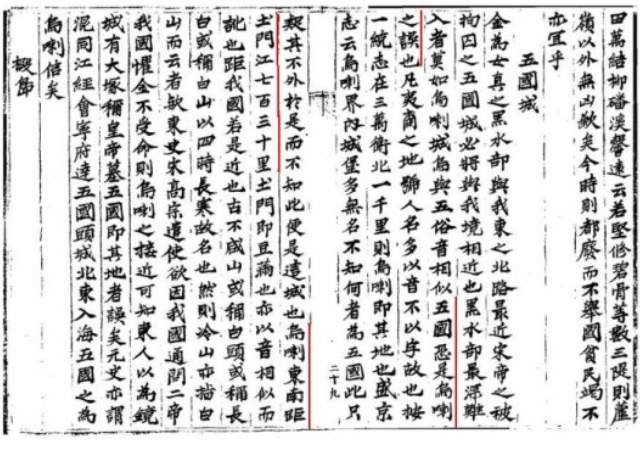 四萬結柳磻溪馨遠云若堅修碧骨等數三隄則蘆
嶺以外無凶歉矣今時則都廢而不擧國貧民竭不
亦宜乎
五國城
金為女真之黑水部與我東之北路最近宋帝之被
拘囚之五國城必將與我境相近也黑水部最深難
入者莫如烏喇城烏與五俗音相似五國恐是烏喇
之誤也凡夷裔之地號人名多以音不以字故也按
一統志在三萬衛北一千里則烏喇即其地也盛京
志云烏喇界內城堡多無名不知何者為五國此只
二十九
疑其不外於是而不知此便是遺城也烏喇東南距
土門江七百三十里土門即豆滿也亦以音相似而
訛也距我國若是近也古不咸山或稱白頭或稱長
白或稱白山以四時長寒故名也然則冷山亦指白
山而云者歟東史宋高宗遣使欲因我國通問二帝
我國懼金不受命則烏喇之接近可知東人以為鏡
城有大塚稱皇帝墓五國即其地者誤矣元史亦謂
混同江經會寧府達五國頭城北東入海五國之為
烏喇信矣
椴島